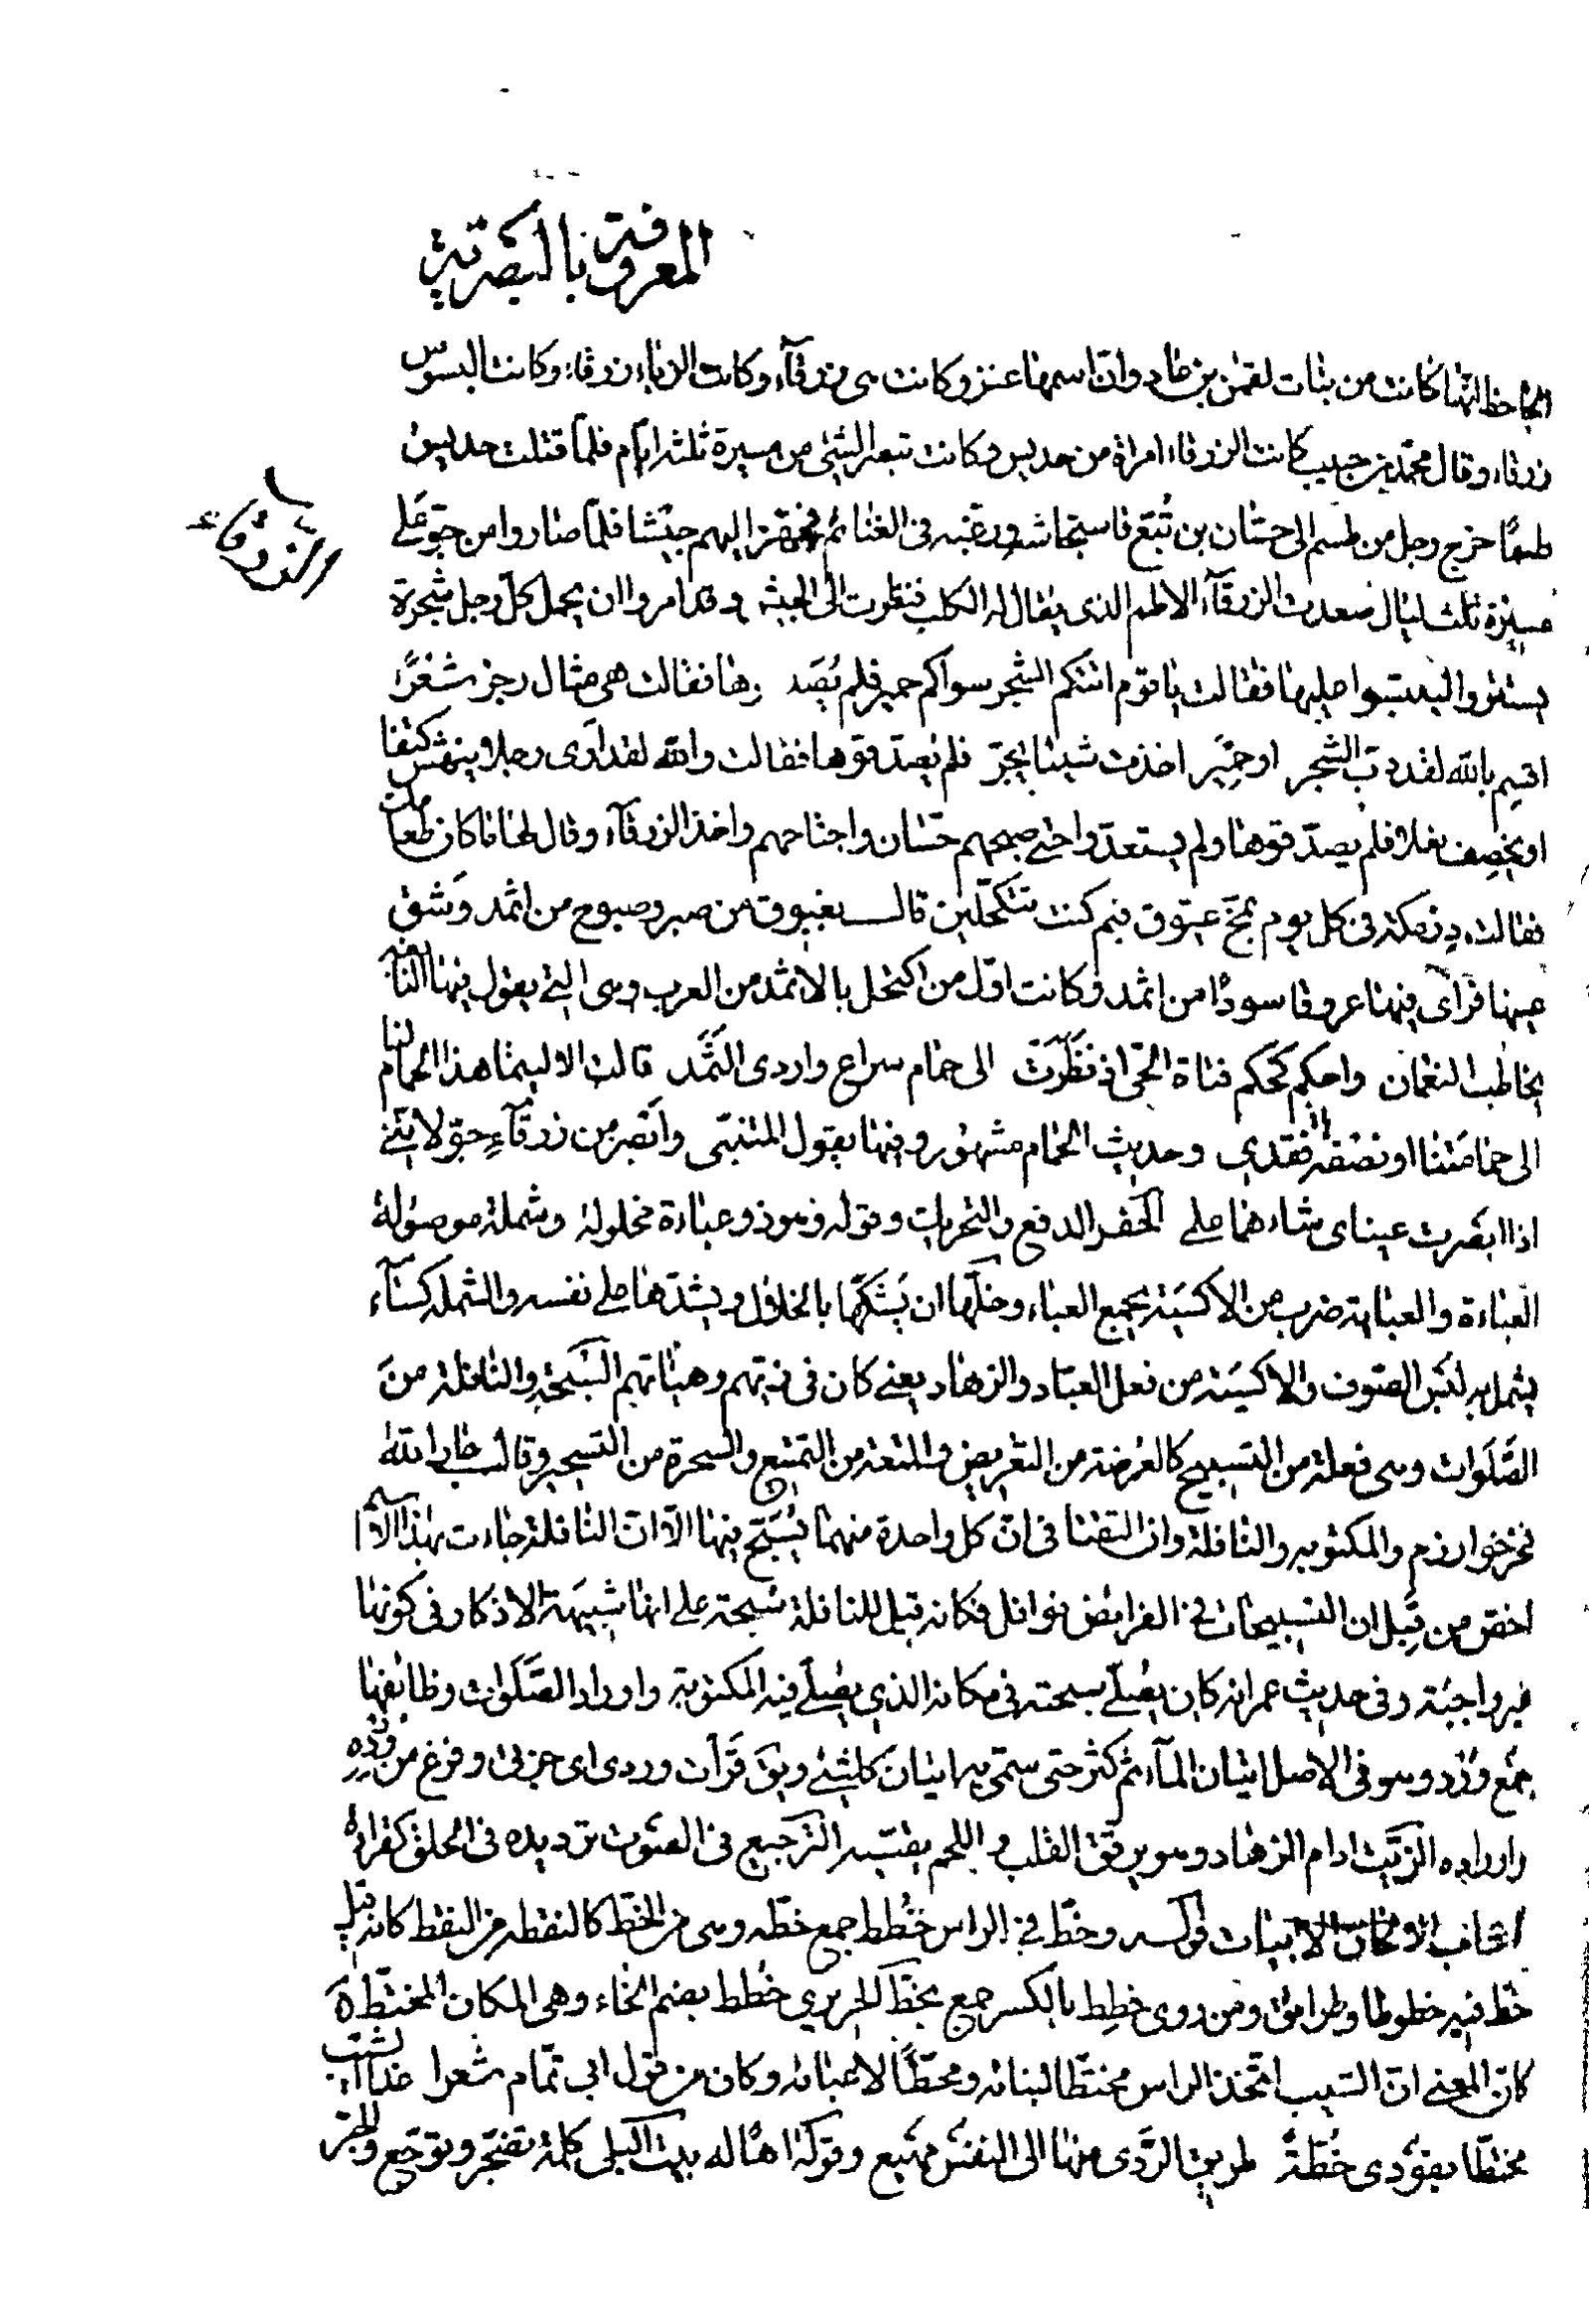 المعروفة بالبصرية
الجاحظ انها كانت من بنات لقمن بن عاد وان اسمها عنز وكانت هى زرقآء وكانت الزباء زرقاء وكانت البسوس
زرقاء وقال محمد بن حبيب كانت الزرقاء امراة من جديس وكانت تبصر الشئ من مسيرة ثلثة ايام فلما قتلت جديس
الزرقاء
طسما خرج رجل من طسم الى حسان بن تبع فاستجاشه ورغبه فى الغنائم فجهز اليهم جيشا فلما صاروا من جو على
مسيرة ثلث ليال صعدت الزرقآء الاطم الذى يقال له الكلب فنظرت الى الجيش وقد امروا ان يحمل كل رجل شجرة
يستتر واليلبسوا عليها فقالت يا قوم اتتكم الشجر سواكم حمير فلم يصد وها فقالت هى مثال رجز شعرا
اقسم بالله لقد دب الشجر او حمير اخذت شيئا يجر فلم يصدقوها فقالت والله لقد ارى رجلا ينهش كتفا
او يخصف نعلا فلم يصدقوها ولم يستعدوا حتى صبحهم حسان واجتاحهم واخذ الزرقآء وقال لها ما كان طعامك
فقالت درمكة فى كل يوم بمخ عتوق فبم كنت تتكحلين قالت بغبوق من صبر وصبوح من اثمد وشق
عينها فراى فيها عروقا سودا من اثمد وكانت اول من اكتحل بالاثمد من العرب وهى التى يقول فيها النابغة
يخاطب النعمان واحكم كحكم فتاة الحى اذ نظرت الى حمام سراع واردى الثمد قالت الا ليتما هذا الحمام لنا
الى حمامتنا او نصفه فقدى وحديث الحمام مشهور وفيها يقول المتنبى وابصر من زرقآء جو لاننى
اذا ابصرت عيناى شاءهما علمى الحفز الدفع والتحريك وقوله وهو ذو عباءة مخلولة وشملة موصولة
العباءة والعباية ضرب من الاكسية بجمع العباء وخلها ان يشكها بالخلال ويشدها على نفسه والشملة كسآء
يشمل به لبس الصوف والاكسية من فعل العباد والزهاد يعنى كان فى زيهم وهيئاتهم السبحة والنافلة من
الصلوات وهى فعلة من التسبيح كالعرضة من التعريض والمتعة من التمتيع والسحرة من التسحير وقال جار الله
فخر خوارزم والمكتوبة والنافلة وان التقتا فى ان كل واحدة منهما يسبح فيها الا ان النافلة جاءت بهذا الاسم
اخص من قبل ان التسبيحات فى الفرايض نوافل فكانه قيل للنافلة سبحة على انها شبيهة الاذكار فى كونها
غير واجبة وفى حديث عمر انه كان يصلى سبحته فى مكانه الذى يصلى فيه المكتوبة واوراد الصلوات وظائفها
جمع ورد وهو فى الاصل اتيان المآء ثم كثر حتى سمى به اتيان كل شئ ويق قرات وردى اى حزبى وفرغ من ورده
واوراده الزيت ادام الزهاد وهو يرقق القلب و اللحم يقسيه الترجيع فى الصوت ترديده فى الحلق كقراءة
اصحاب الالحان الابيات قوله وخط فى الراس خطط جمع خطه وهى من الخط كالنقطه من النقط كانه قيل
خط فيه خطوطا وطرائق ومن روى خطط بالكسر جمع بخط الحريرى خطط بضم الخاء وهى المكان المختطة
كان المعنى ان الشيب اتخذ الراس مختطا لبنائه ومحطا لاعبائه وكان من قول ابى تمام شعرا غدا الشيب
مختطا بفودى خطة طريق الردى منها الى النفس مهيع وقوله اها له بيت البلى كلمة تفجر وتوجع والجر